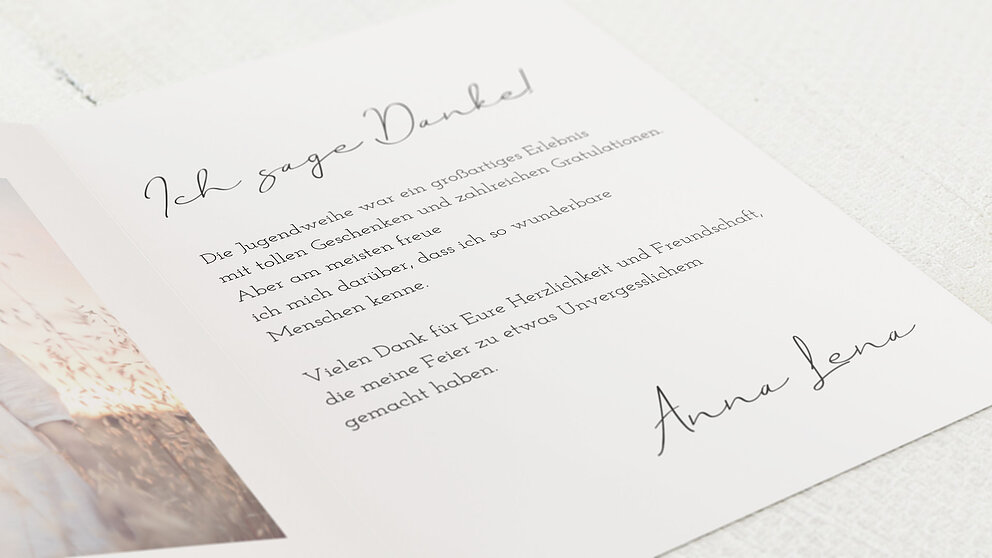 Ich sage Danke!
Die Jugendweihe war ein großartiges Erlebnis
mit tollen Geschenken und zahlreichen Gratulationen.
Aber am meisten freue
ich mich darüber, dass ich so wunderbare
Menschen kenne.
Vielen Dank für Eure Herzlichkeit und Freundschaft,
die meine Feier zu etwas Unvergesslichem
gemacht haben.
Anna Lena